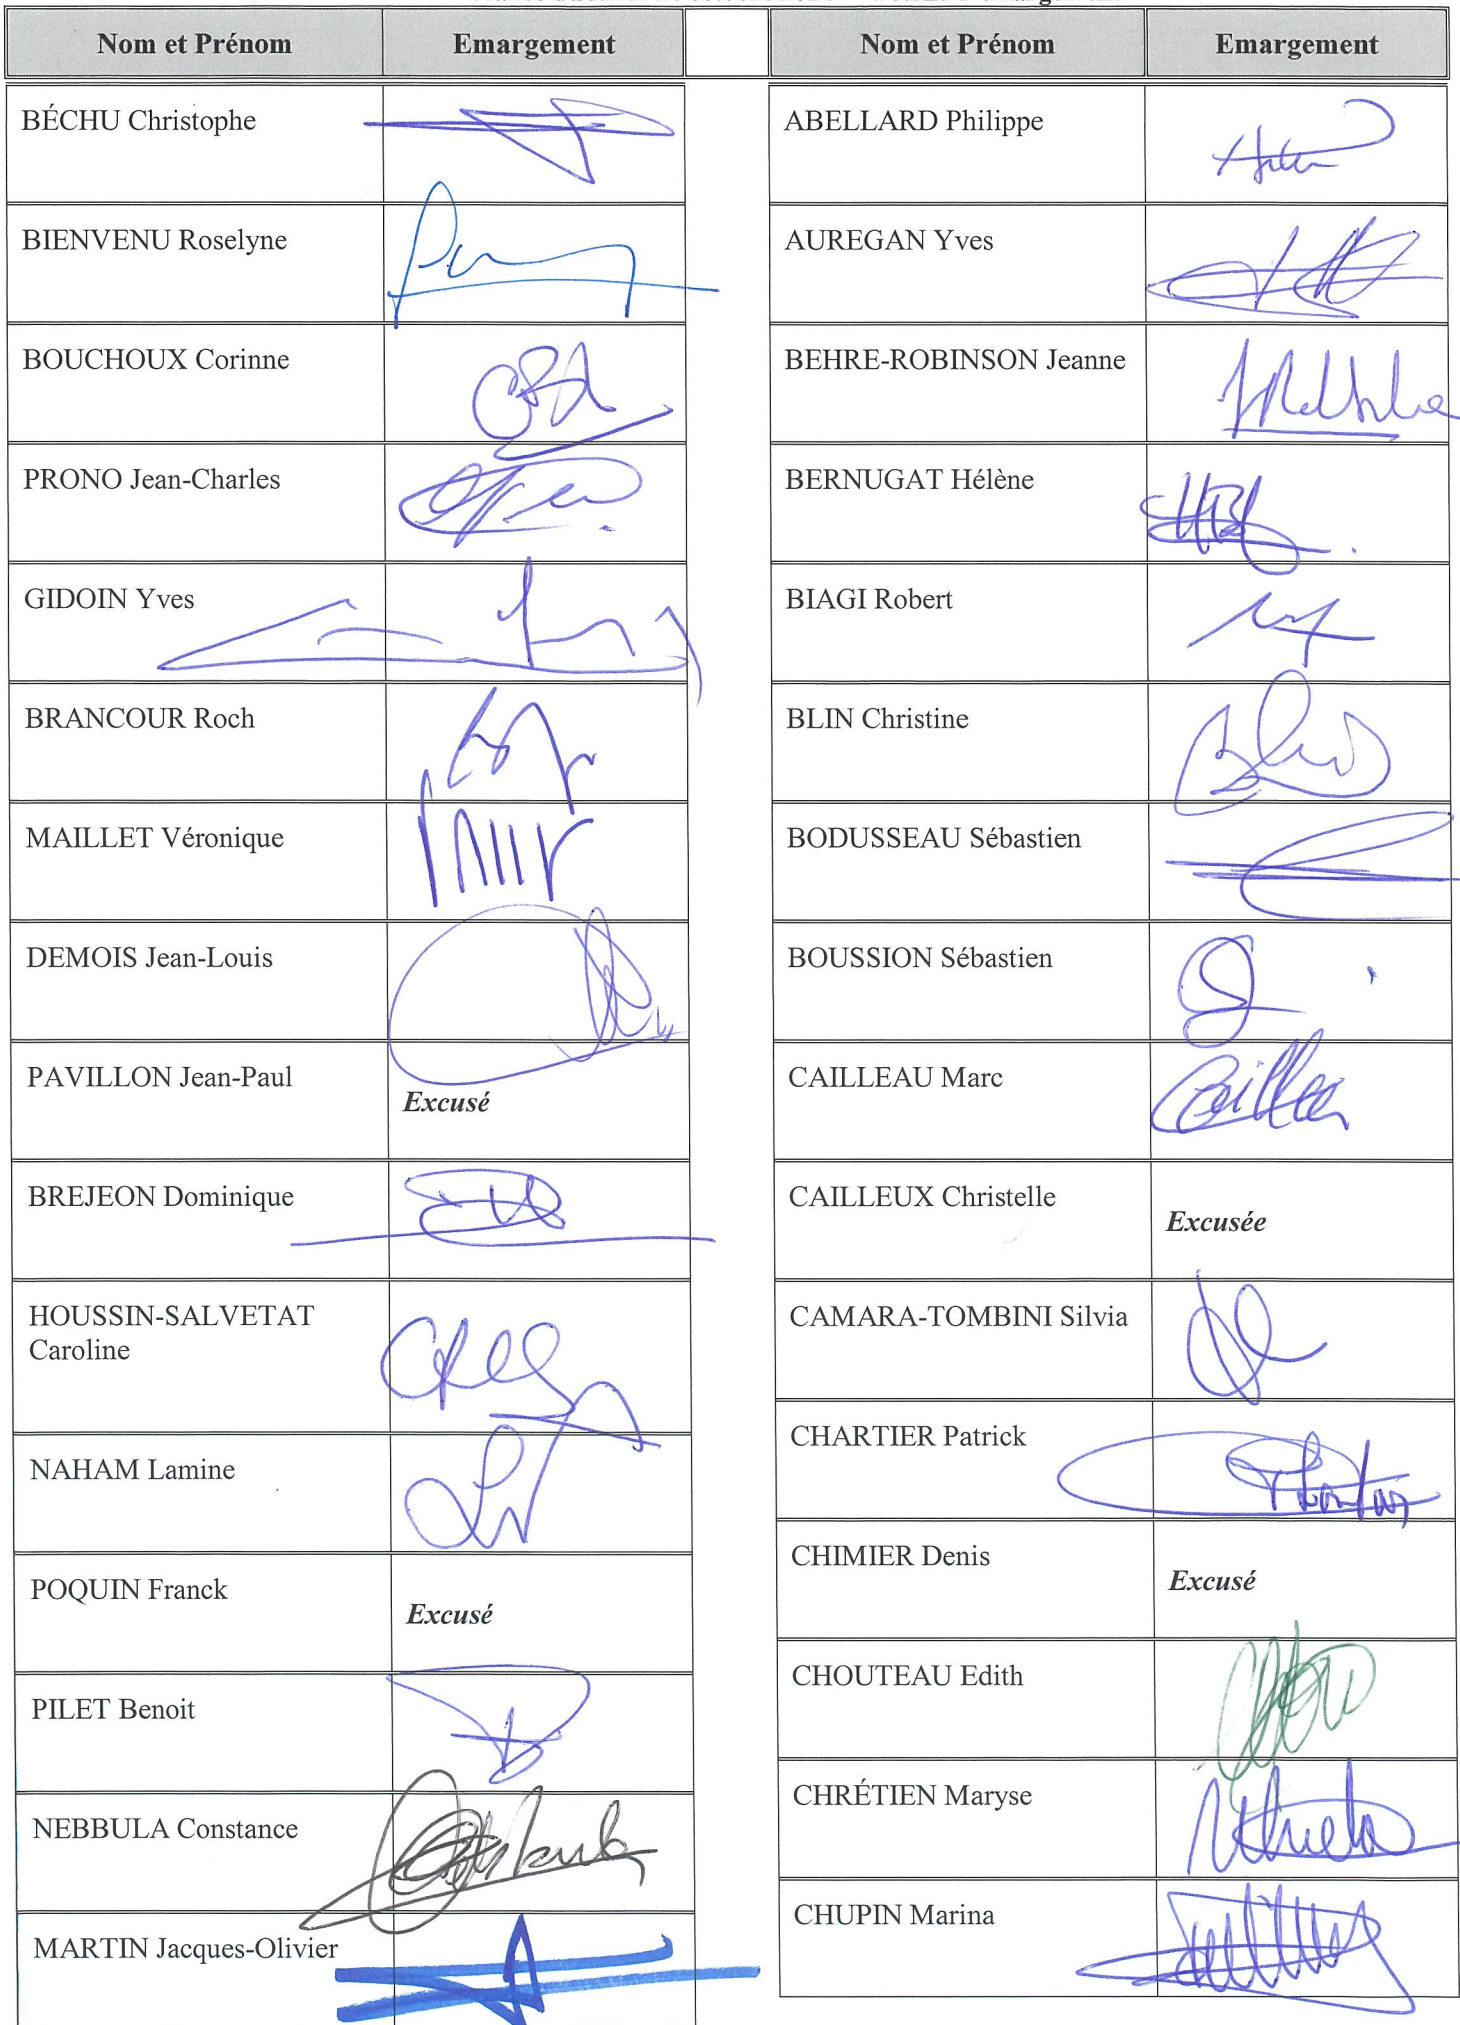 Nom et Prénom Emargement
BÉCHU Christophe
BIENVENU Roselyne
BOUCHOUX Corinne
PRONO Jean-Charles
GIDOIN Yves
BRANCOUR Roch
MAILLET Véronique
DEMOIS Jean-Louis
PAVILLON Jean-Paul
Excusé
BREJEON Dominique
HOUSSIN-SALVETAT
Caroline
NAHAM Lamine
POQUIN Franck
Excusé
PILET Benoit
NEBBULA Constance
MARTIN Jacques-Olivier
Nom et Prénom Emargement
ABELLARD Philippe
AUREGAN Yves
BEHRE-ROBINSON Jeanne
BERNUGAT Hélène
BIAGI Robert
BLIN Christine
BODUSSEAU Sébastien
BOUSSION Sébastien
CAILLEAU Marc
CAILLEUX Christelle
Excusée
CAMARA-TOMBINI Silvia
CHARTIER Patrick
CHIMIER Denis
Excusé
CHOUTEAU Edith
CHRÉTIEN Maryse
CHUPIN Marina